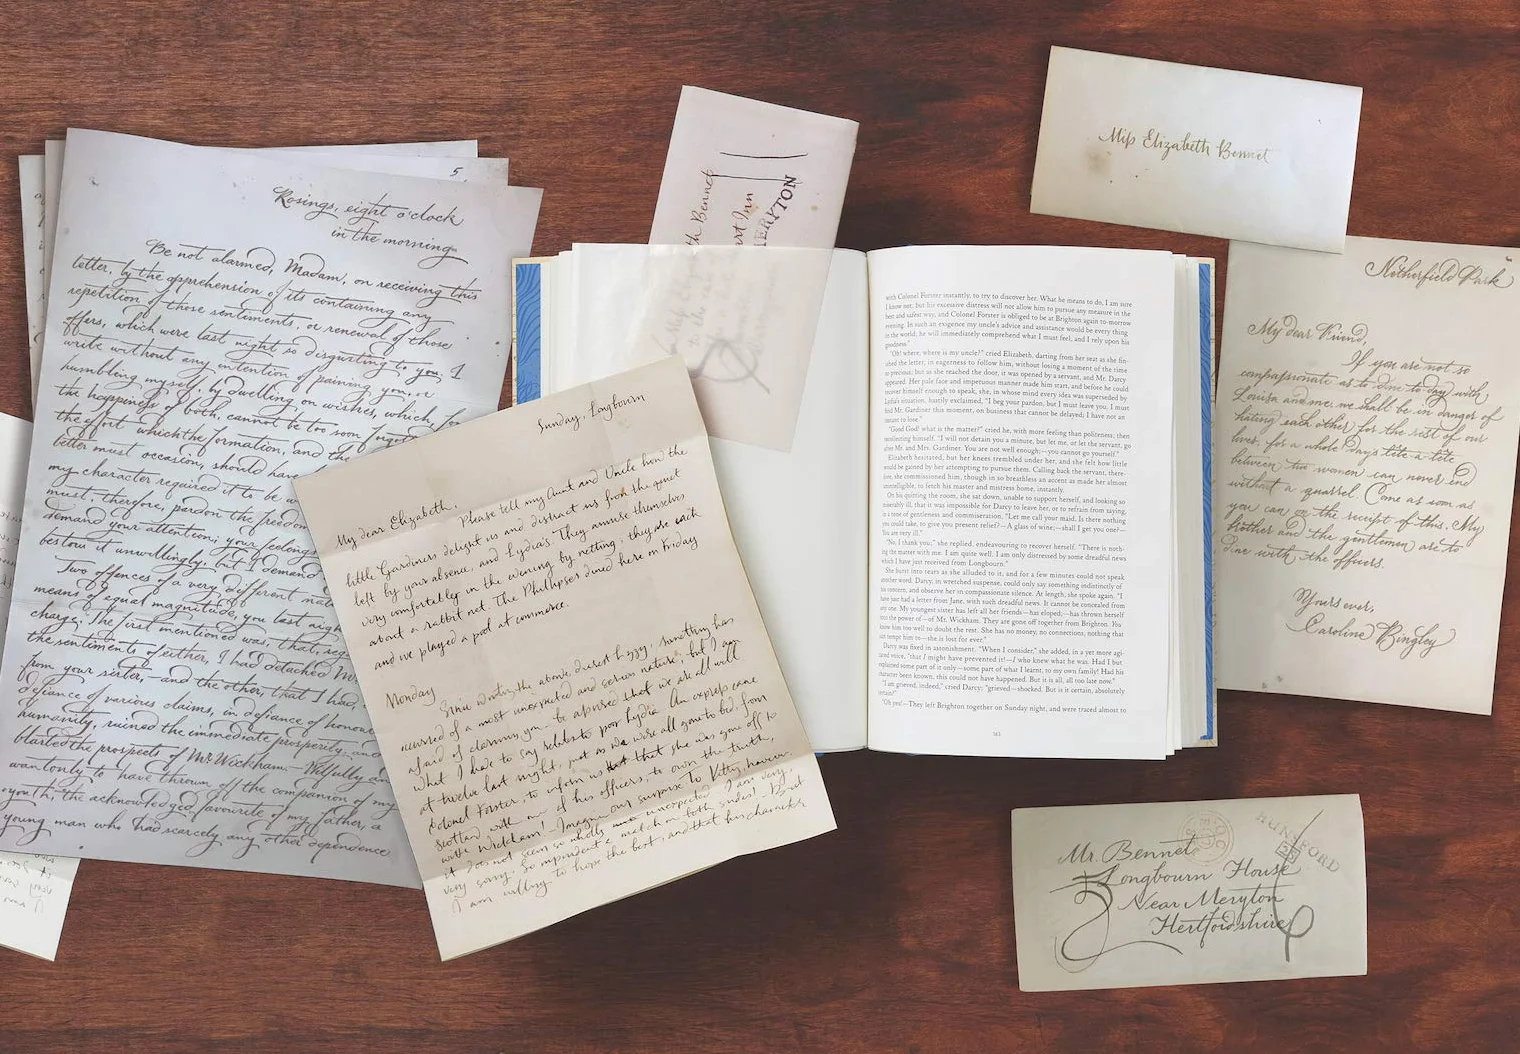 5
Rosings, eight o'clock
in the morning
Be not alarmed, Madam, on receiving this
letter, by the apprehension of its containing any
repetition of those sentiments, or renewal of those
offers, which were last night so disgusting to you. I
write without any intention of paining you, or
humbling myself, by dwelling on wishes, which, for
the happiness of both, cannot be too soon
the effort which the formation, and the
letter must occasion, should have
my character required it to be
must, therefore, pardon the freedom
demand your attention; your feelings
bestow it unwillingly, but I demand
Two offences of a very different
means of equal magnitude, you last
charge. The first mentioned was, that,
the sentiments of either, I had detached
from your sister,—and the other, that I had,
defiance of various claims, in defiance of honour
humanity, ruined the immediate prosperity, and
blasted the prospects of Mr. Wickham.—Wilfully
wantonly to have thrown off the companion of my
youth, the acknowledged favourite of my father, a
young man who had scarcely any other dependence
Sunday, Longbourn
My dear Elizabeth,
Please tell my Aunt and Uncle how the
little Gardiners delight us and distract us from the quiet
left by your absence, and Lydia's. They amuse themselves
very comfortably in the evening by netting, they are each
about a rabbit net. The Phillipses dined here on Friday
and we played a pool at commerce.
Monday
Since writing the above, dearest Lizzy, something has
occurred of a most unexpected and serious nature; but I am
afraid of alarming you—be assured that we are all well.
What I have to say relates to poor Lydia. An express came
at twelve last night, just as we were all gone to bed, from
Colonel Forster, to inform us that she was gone off to
Scotland with one of his officers; to own the truth,
with Wickham!—Imagine our surprise. To Kitty, however,
it does not seem so wholly unexpected. I am very,
very sorry. So imprudent a match on both sides!—But
I am willing to hope the best, and that his character
th Bennet
rt Inn
MERYTON
with Colonel Forster instantly, to try to discover her. What he means to do, I am sure
I know not; but his excessive distress will not allow him to pursue any measure in the
best and safest way, and Colonel Forster is obliged to be at Brighton again to-morrow
evening. In such an exigence my uncle's advice and assistance would be every thing
in the world; he will immediately comprehend what I must feel, and I rely upon his
goodness."
"Oh! where, where is my uncle?" cried Elizabeth, darting from her seat as she fin-
ished the letter, in eagerness to follow him, without losing a moment of the time
so precious; but as she reached the door, it was opened by a servant, and Mr. Darcy
appeared. Her pale face and impetuous manner made him start, and before he could
recover himself enough to speak, she, in whose mind every idea was superseded by
Lydia's situation, hastily exclaimed, "I beg your pardon, but I must leave you. I must
find Mr. Gardiner this moment, on business that cannot be delayed; I have not an
instant to lose."
"Good God! what is the matter?" cried he, with more feeling than politeness; then
recollecting himself, "I will not detain you a minute, but let me, or let the servant, go
after Mr. and Mrs. Gardiner. You are not well enough;—you cannot go yourself."
Elizabeth hesitated, but her knees trembled under her, and she felt how little
would be gained by her attempting to pursue them. Calling back the servant, there-
fore, she commissioned him, though in so breathless an accent as made her almost
unintelligible, to fetch his master and mistress home, instantly.
On his quitting the room, she sat down, unable to support herself, and looking so
miserably ill, that it was impossible for Darcy to leave her, or to refrain from saying,
in a tone of gentleness and commiseration, "Let me call your maid. Is there nothing
you could take, to give you present relief?—A glass of wine;—shall I get you one?—
You are very ill."
"No, I thank you;" she replied, endeavouring to recover herself. "There is noth-
ing the matter with me. I am quite well. I am only distressed by some dreadful news
which I have just received from Longbourn."
She burst into tears as she alluded to it, and for a few minutes could not speak
another word. Darcy, in wretched suspense, could only say something indistinctly of
his concern, and observe her in compassionate silence. At length, she spoke again. "I
have just had a letter from Jane, with such dreadful news. It cannot be concealed from
any one. My youngest sister has left all her friends—has eloped;—has thrown herself
into the power of—of Mr. Wickham. They are gone off together from Brighton. You
know him too well to doubt the rest. She has no money, no connections, nothing that
can tempt him to—she is lost for ever."
Darcy was fixed in astonishment. "When I consider," she added, in a yet more agi-
tated voice, "that I might have prevented it!—I who knew what he was. Had I but
explained some part of it only—some part of what I learnt, to my own family! Had his
character been known, this could not have happened. But it is all, all too late now."
"I am grieved, indeed," cried Darcy; "grieved—shocked. But is it certain, absolutely
certain?"
"Oh yes!—They left Brighton together on Sunday night, and were traced almost to
Miss Elizabeth Bennet
Netherfield Park
My dear Friend,
If you are not so
compassionate as to dine to-day with
Louisa and me, we shall be in danger of
hating each other for the rest of our
lives, for a whole day's tête-à-tête
between two women can never end
without a quarrel. Come as soon as
you can on the receipt of this. My
brother and the gentlemen are to
dine with the officers.
Yours ever,
Caroline Bingley
HUNSFORD
Mr. Bennet
Longbourn House
Near Meryton
Hertfordshire